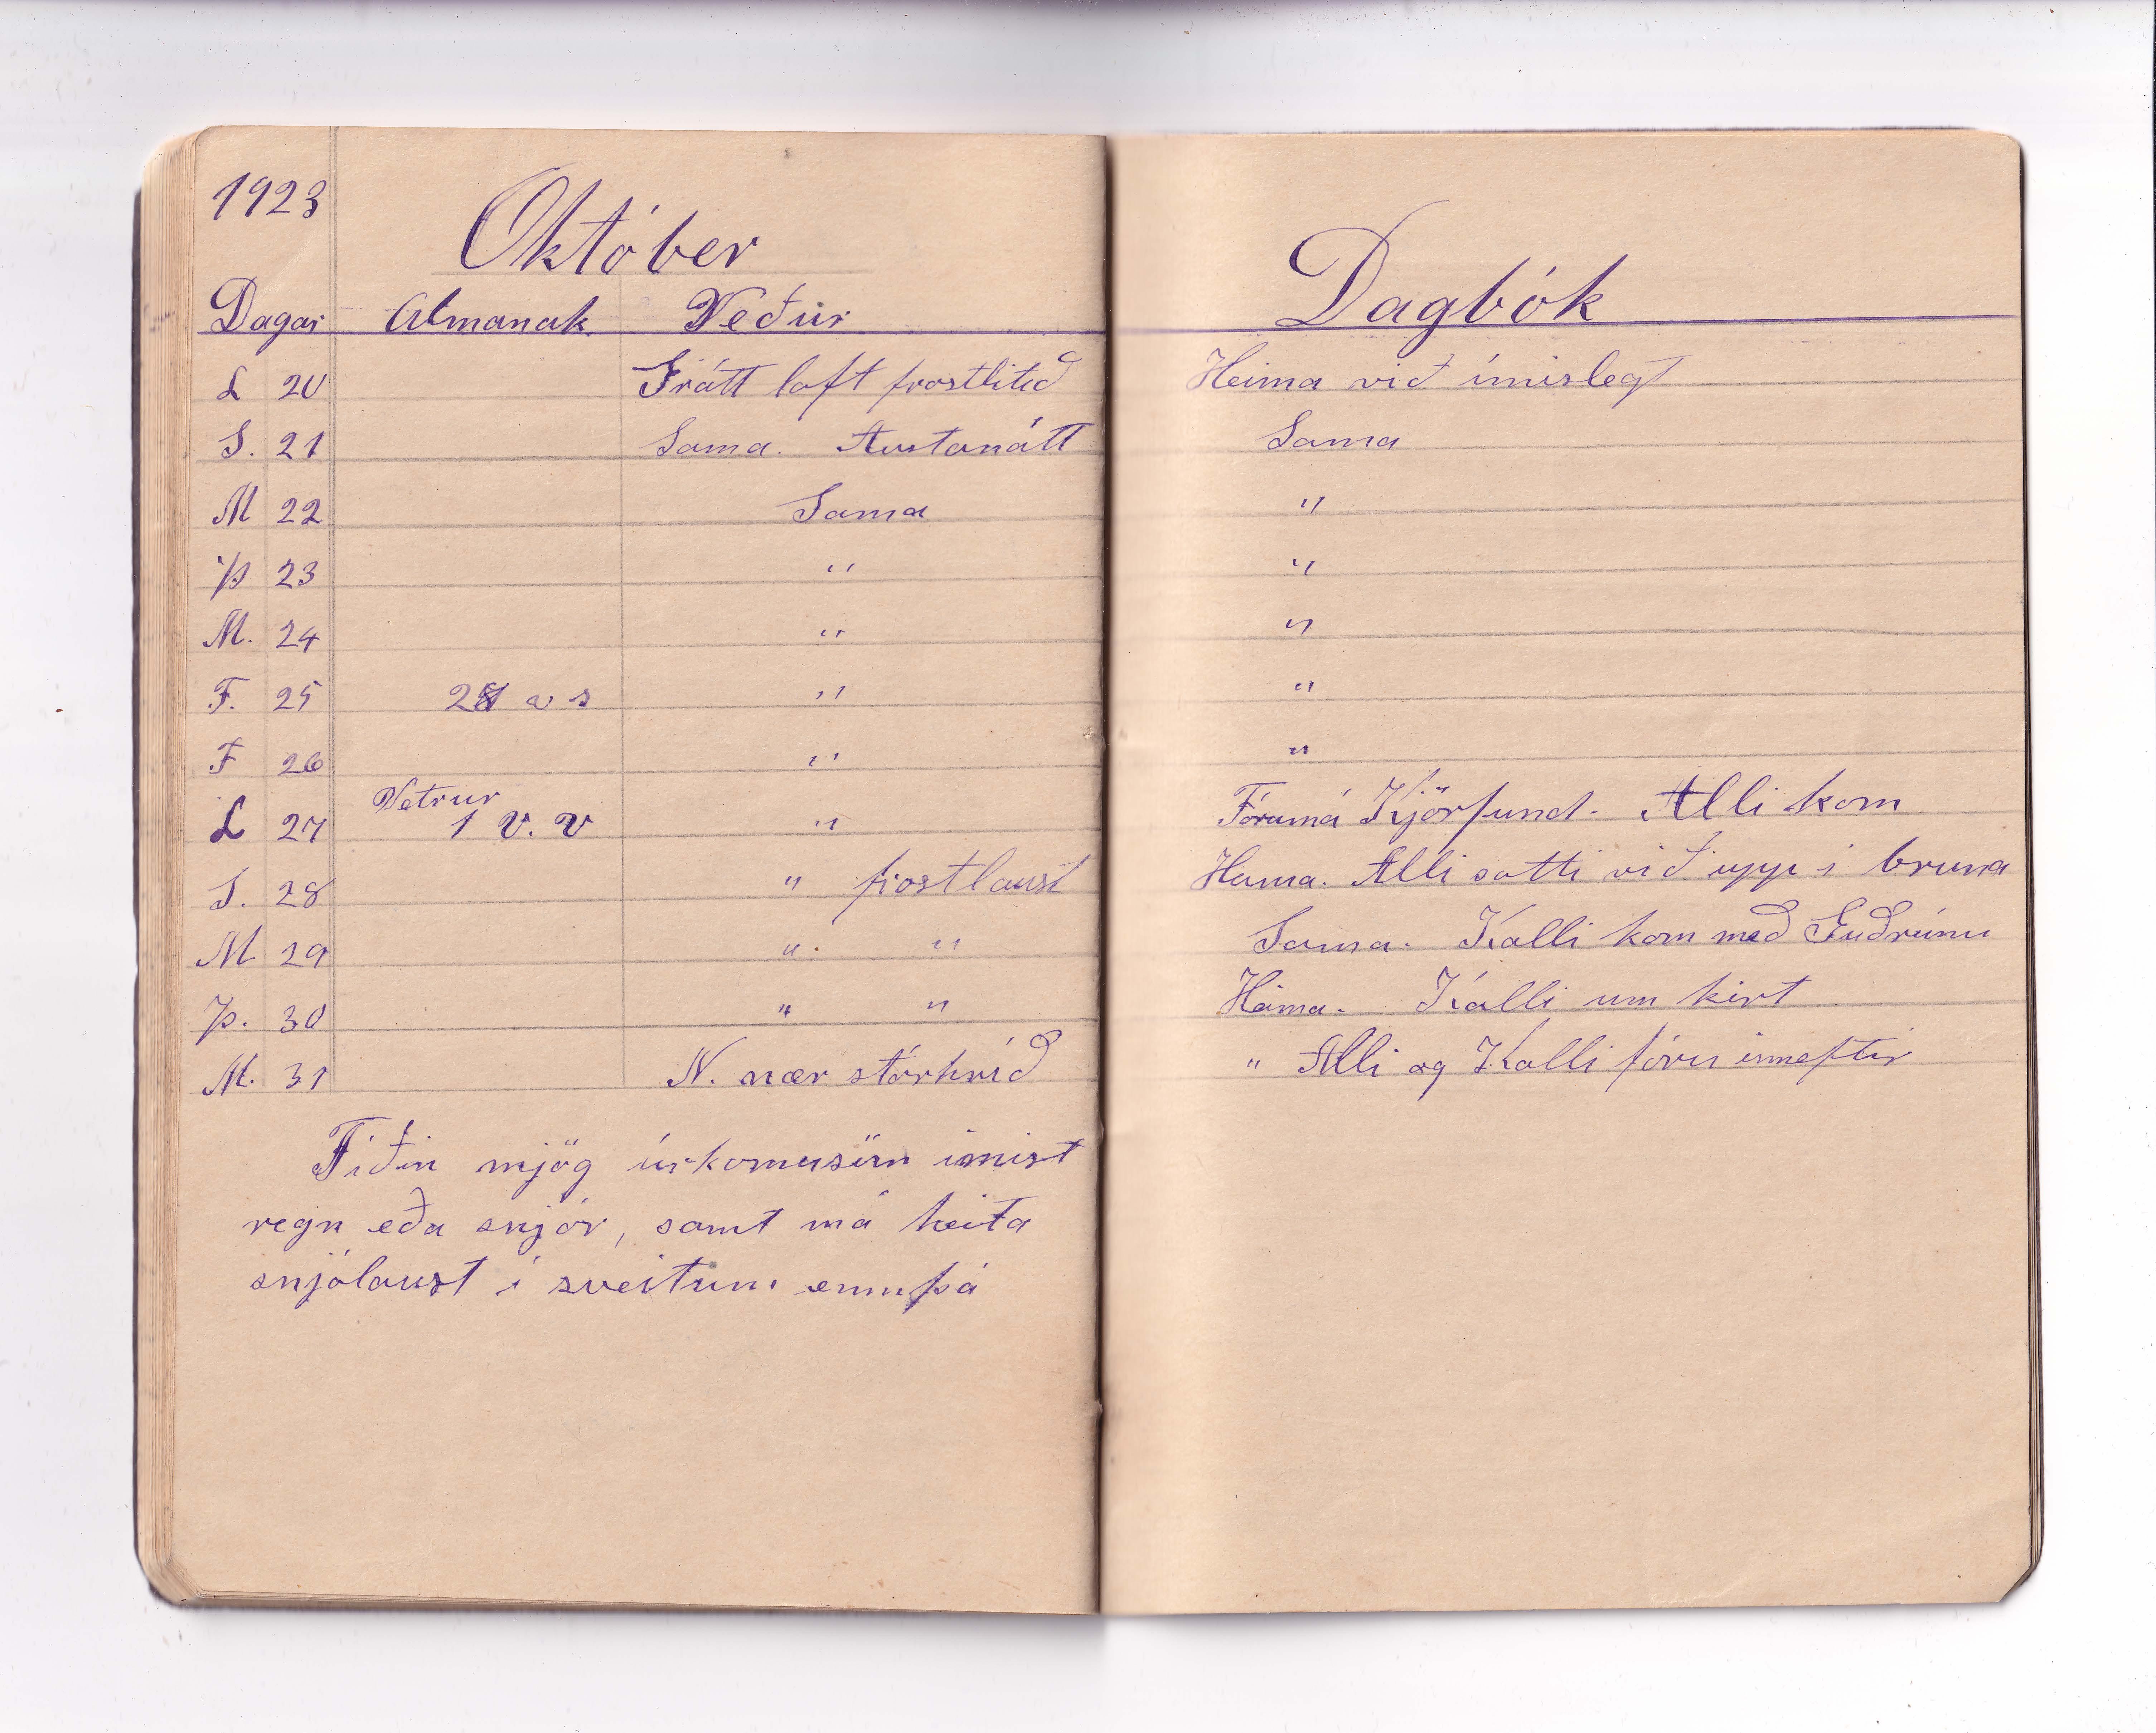 1923
Október
Dagar Almanak Veður
L 20 Grátt loft frostlitið
S. 21 Sama. Austanátt
M 22 Sama
Þ 23 "
M. 24 "
F. 25 v s "
F 26 "
Vetrur
L 27 1 V. V "
S. 28 " frostlaust
M 29 " "
Þ. 30 " "
M. 31 N. nær stórhríð
Tíðin mjög úrkomusöm ímist
regn eða snjór, samt má heita
snjólaust í sveitum ennþá
Dagbók
Heima við ímislegt
Sama
"
"
"
"
"
Fórum á Kjörfund. Alli kom
Heima. Alli sótti við upp í bruna
Sama. Kalli kom með Guðrúnu
Heima. Kalli um kirt
" Alli og Kalli fóru inneftir